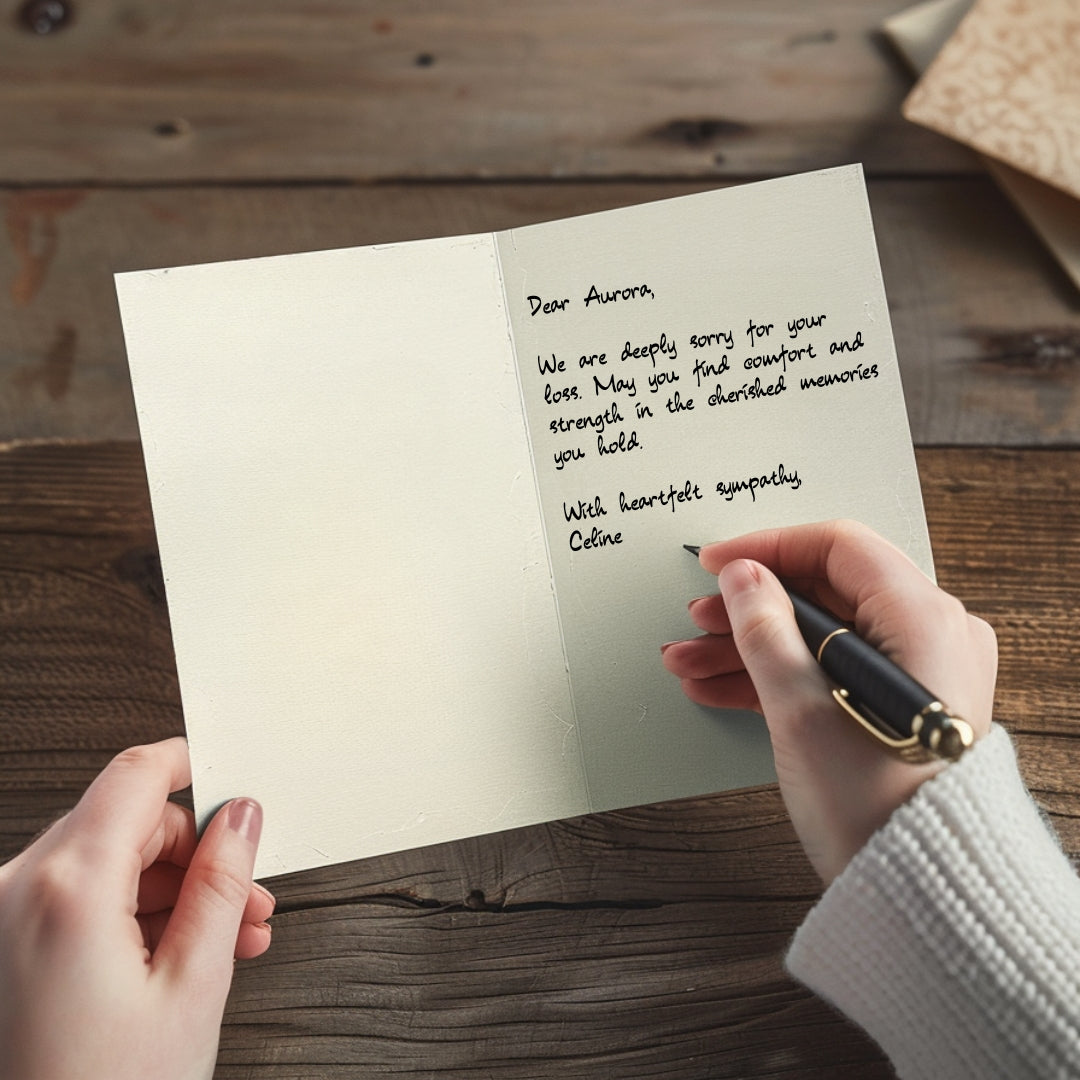 Dear Aurora,
We are deeply sorry for your
loss. May you find comfort and
strength in the cherished memories
you hold.
With heartfelt sympathy,
Celine